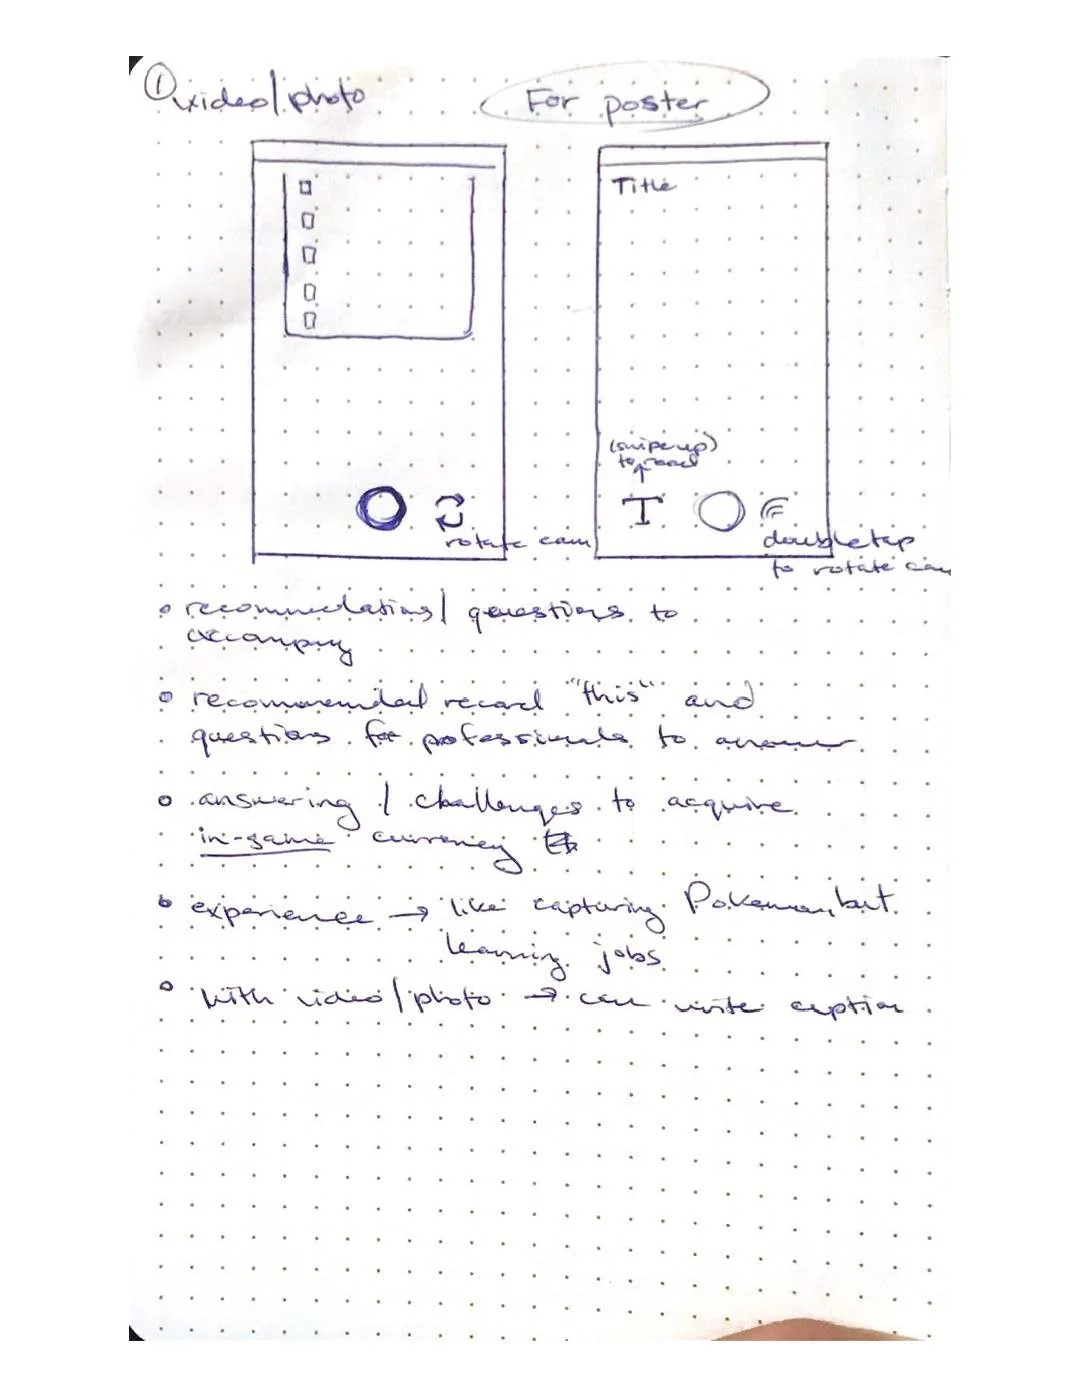 ① video/photo
For poster
Title
(swipe up)
to read
T
rotate cam
double tap
to rotate cam
recommendations/ questions to
accompany
recommended record "this" and
questions for pofessionals to answer
answering / challenges to acquire
in-game currency
experience → like capturing Pokemon, but
learning jobs
with video/photo → can write caption